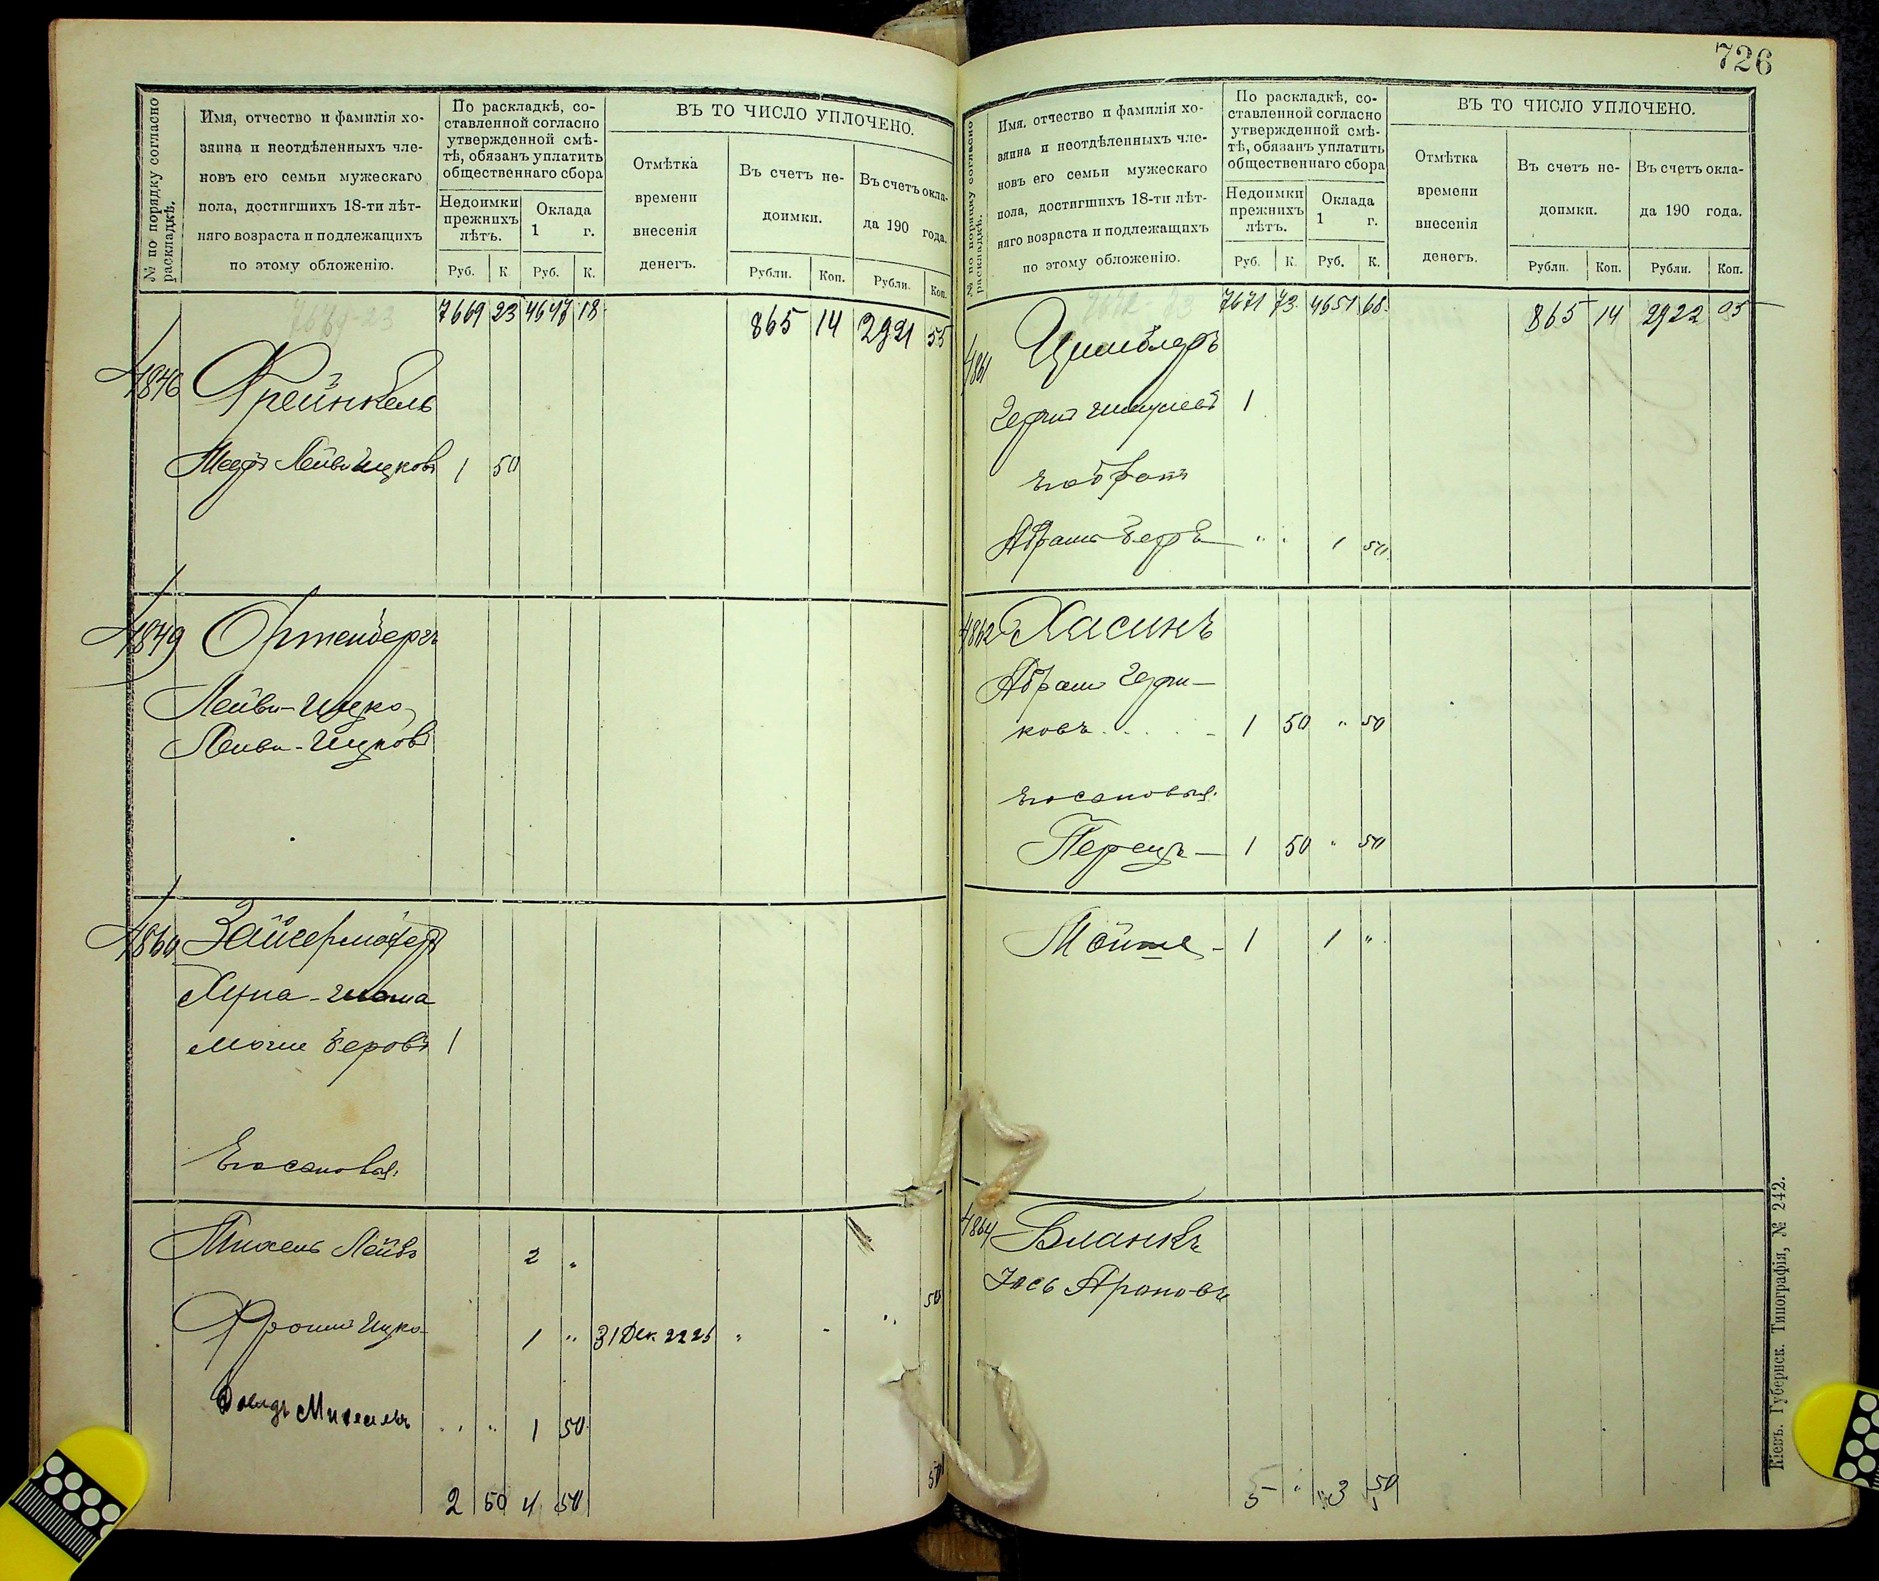 № по порядку согласно раскладкѣ.
Имя, отчество и фамилія хо-
зяина и неотдѣленныхъ чле-
новъ его семьи мужескаго
пола, достигшихъ 18-ти лѣт-
няго возраста и подлежащихъ
по этому обложенію.
По раскладкѣ, со-
ставленной согласно
утвержденной смѣ-
тѣ, обязанъ уплатить
общественнаго сбора
Недоимки
прежнихъ
лѣтъ.
Оклада
1 г.
Руб. К. Руб. К.
ВЪ ТО ЧИСЛО УПЛОЧЕНО.
Отмѣтка
времени
внесенія
денегъ.
Въ счетъ не-
доимки.
Въ счетъ окла-
да 190 года.
Рубли. Коп. Рубли. Коп.
7669-23 7669 23 4647 18 865 14 2921 55
4846 Френкель
Лейви Ицковъ 1 50
4849 Ортенбергъ
Лейви-Ицко
Лейви-Ицковъ
4860
Мошко Беровъ 1
Его сыновья:
Михель Лейвъ 2 "
Фроимъ Ицко 1 " 31 Дек. 2225 " - " 50
Давидъ Михелевъ " " 1 50
2 50 4 50 50
726
№ по порядку согласно раскладкѣ.
Имя, отчество и фамилія хо-
зяина и неотдѣленныхъ чле-
новъ его семьи мужескаго
пола, достигшихъ 18-ти лѣт-
няго возраста и подлежащихъ
по этому обложенію.
По раскладкѣ, со-
ставленной согласно
утвержденной смѣ-
тѣ, обязанъ уплатить
общественнаго сбора
Недоимки
прежнихъ
лѣтъ.
Оклада
1 г.
Руб. К. Руб. К.
ВЪ ТО ЧИСЛО УПЛОЧЕНО.
Отмѣтка
времени
внесенія
денегъ.
Въ счетъ не-
доимки.
Въ счетъ окла-
да 190 года.
Рубли. Коп. Рубли. Коп.
7671 73 4651 68 865 14 2922 05
4861 Цимблеръ
1
Его братъ
Абрамъ Беръ " " 1 50
4862 Хасинъ
Абрамъ Герш-
ковъ 1 50 " 50
Его сыновья:
Перецъ 1 50 " 50
Мойше 1 1 "
4864 Бланкъ
Іось Ароновъ
5 " 3 50
Кіевъ. Губернск. Типографія, № 242.